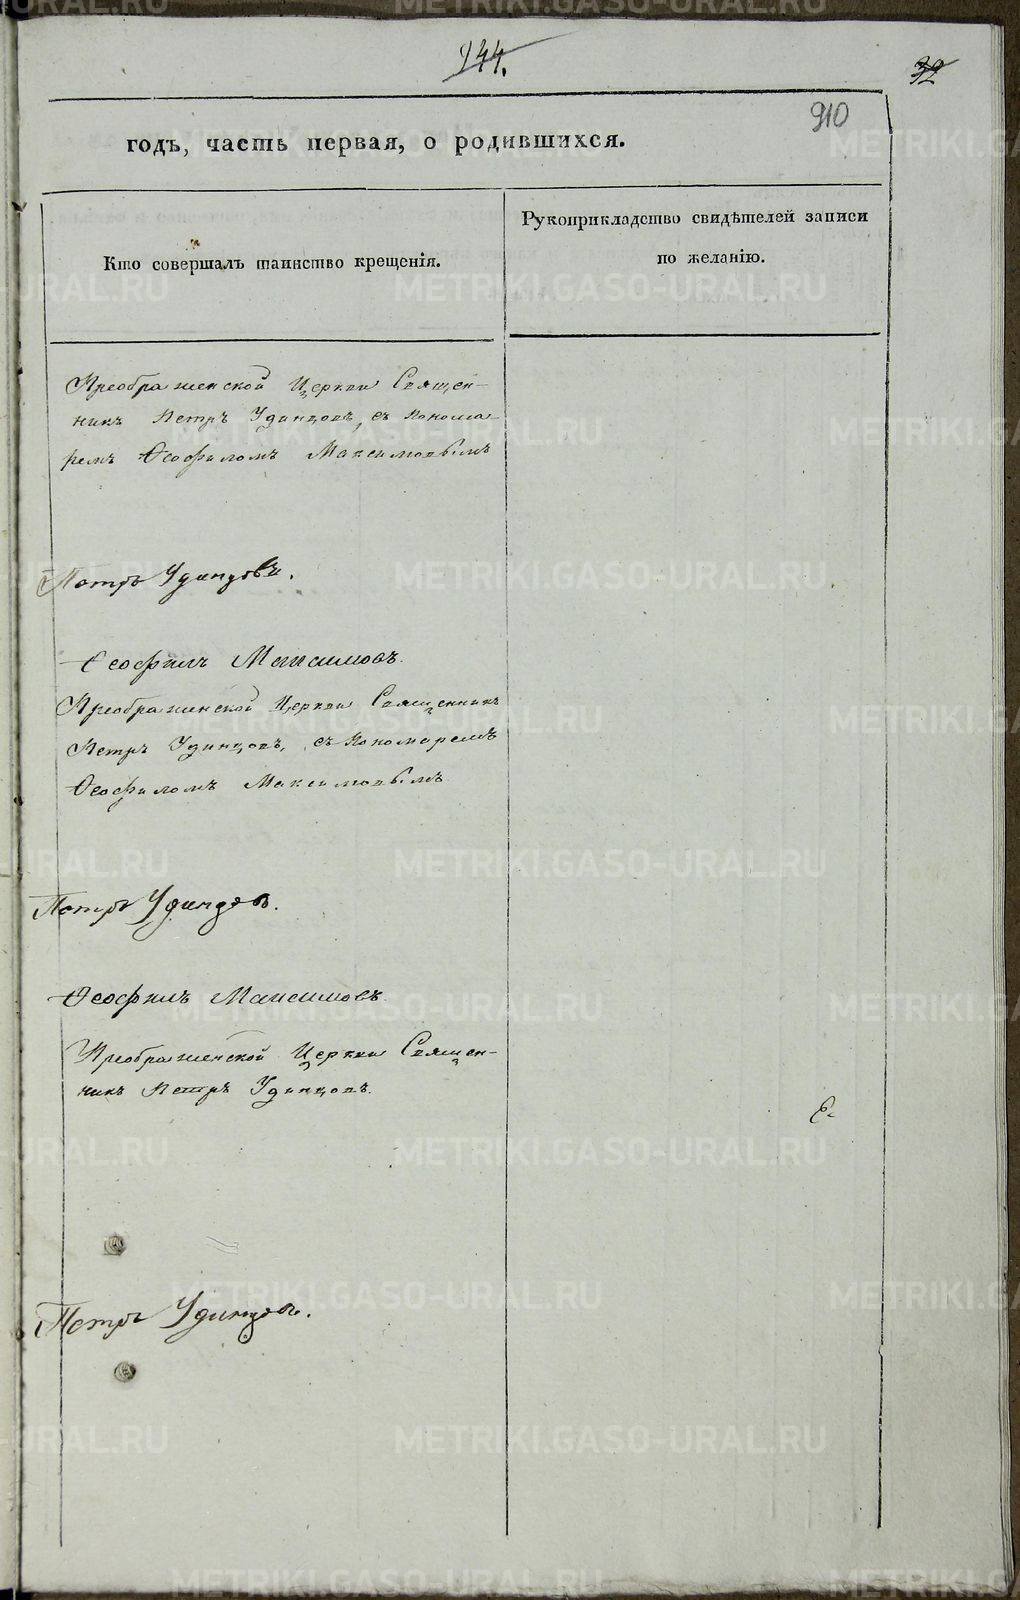 944.
32
910
годъ, часть первая, о родившихся.
Кто совершалъ таинство крещенія.
Рукоприкладство свидѣтелей записи
по желанію.
Преображенской Церкви Священ-
никъ Петръ Удинцовъ, съ Понома-
ремъ Ѳеофиломъ Максимовымъ
Петръ Удинцовъ.
Ѳеофилъ Максимовъ.
Преображенской Церкви Священникъ
Петръ Удинцовъ, съ Пономаремъ
Ѳеофиломъ Максимовымъ
Петръ Удинцов.
Ѳеофилъ Максимовъ.
Преображенской Церкви Священ-
никъ Петръ Удинцовъ.
Петръ Удинцов.
METRIKI.GASO-URAL.RU